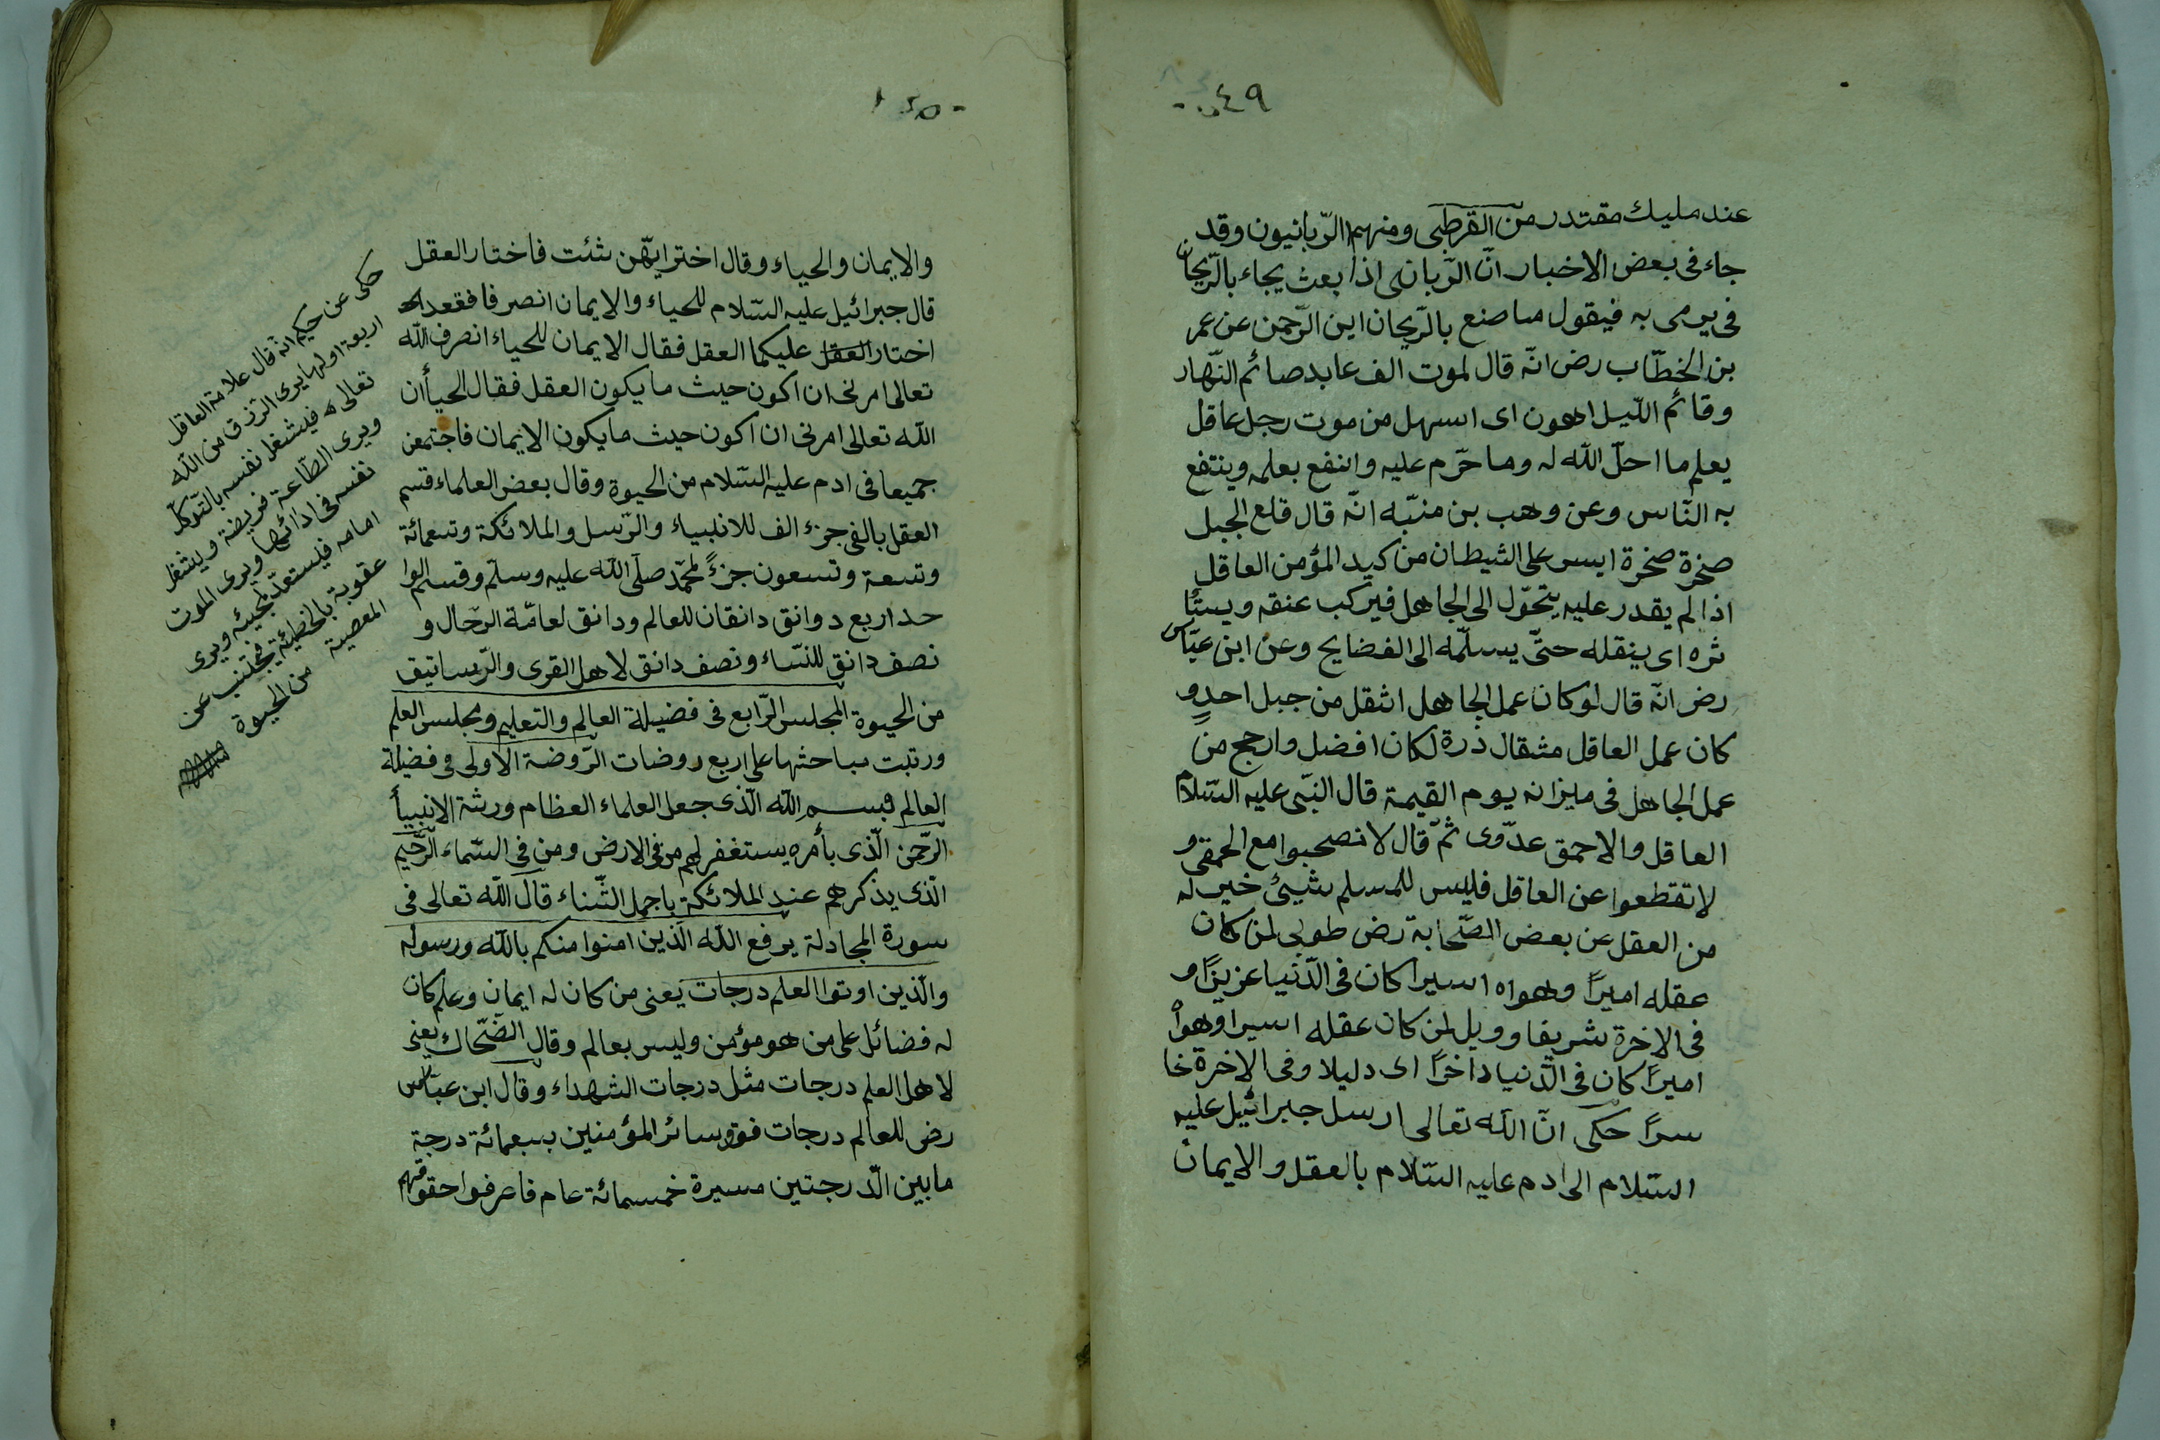 ٤٩
عند مليك مقتدر من القرطبى ومنهم الرّبانيون وقد
جاء فى بعض الاخبار انّ الرّبانى اذا بعث يجاء بالرّيحان
فيرمى به فيقول ما اصنع بالرّيحان اين الرّحمن عن عمر
بن الخطّاب رض انّه قال لموت الف عابد صائم النّهار
وقائم اللّيل اهون اى اسهل من موت رجل عاقل
يعلم ما احلّ اللّه له وما حرّم عليه وانفع بعلمه وينتفع
به النّاس وعن وهب بن منبّه انّه قال قلع الجبل
صخرة صخرة ايسر على الشيطان من كيد المؤمن العاقل
اذا لم يقدر عليه يتحوّل الى الجاهل فيركب عنقه ويستأ
ثره اى ينقله حتّى يسلّمه الى الفضايح وعن ابن عبّاس
رض انّه قال لو كان عمل الجاهل اثقل من جبل احدٍ و
كان عمل العاقل مثقال ذرة لكان افضل وارجح من
عمل الجاهل فى ميزانه يوم القيمة قال النّبى عليه السّلام
العاقل والاحمق عدّوى ثمّ قال لا تصحبوا مع الحمقى و
لا تقطعوا عن العاقل فليس للمسلم شيئ خير له
من العقل عن بعض الصّحابة رض طوبى لمن كان
عقله اميرًا وهواه اسيرا كان فى الدّنيا عزيزًا و
فى الاخرة شريفا وويل لمن كان عقله اسيرا وهواه
اميرًا كان فى الدّنيا داخرًا اى دليلا وفى الاخرة خا
سرًا حكى انّ اللّه تعالى ارسل جبرائيل عليه
السّلام الى ادم عليه السّلام بالعقل والايمان
والايمان والحياء وقال اختر ايّهن شئت فاختار العقل
قال جبرائيل عليه السّلام للحياء والايمان انصرفا فقد
اختار العقل عليكما العقل فقال الايمان للحياء انصرف اللّه
تعالى امرنى ان اكون حيث ما يكون العقل فقال الحيأ ان
اللّه تعالى امرنى ان اكون حيث ما يكون الايمان فاجتمعن
جميعا فى ادم عليه السّلام من الحيوة وقال بعض العلماء قسم
العقل بالفى جزء الف للانبياء والرّسل والملائكة وتسعمائة
وتسعة وتسعون جزءً لمحمّد صلّى اللّه عليه وسلّم وقسم الوا
حد اربع دوانق دانقان للعالم ودانق لعامّة الرّجال و
نصف دانق للنسّاء ونصف دانق لاهل القرى والرّساتيق
من الحيوة المجلس الرّابع فى فضيلة العالم والتعليم ومجلس العلم
ورتبت مباحثها على اربع روضات الرّوضة الاولى فى فضيلة
العالم فبسم اللّه الّذى جعل العلماء العظام ورثة الانبيأ
الرّحمن الّذى بأمره يستغفر لهم من فى الارض ومن فى السّماء الرّحيم
الّذى يذكرهم عند الملائكة باجمل الثّناء قال اللّه تعالى فى
سورة المجادلة يرفع اللّه الّذين امنوا منكم باللّه ورسوله
والّذين اوتوا العلم درجات يعنى من كان له ايمان وعلم كان
له فضائل على من هو مؤمن وليس بعالم وقال الضّحاك يعنى
لاهل العلم درجات مثل درجات الشهداء وقال ابن عبّاس
رض للعالم درجات فوق سائر المؤمنين بسبعمائة درجة
ما بين الدّرجتين مسيرة خمسمائة عام فاعرفوا حقوقهم
حكى عن حكيم انّه قال علامة العاقل
اربعة اولها يرى الرّزق من اللّه
تعالى فيشغل نفسه بالتّوكّل
ويرى الطّاعة فريضة ويشغل
نفسه فى ادائها ويرى الموت
امامه فيستعدّ لمجيئه ويرى
عقوبة بالخطيئة فيجتنب عن
المعصية من الحيوة